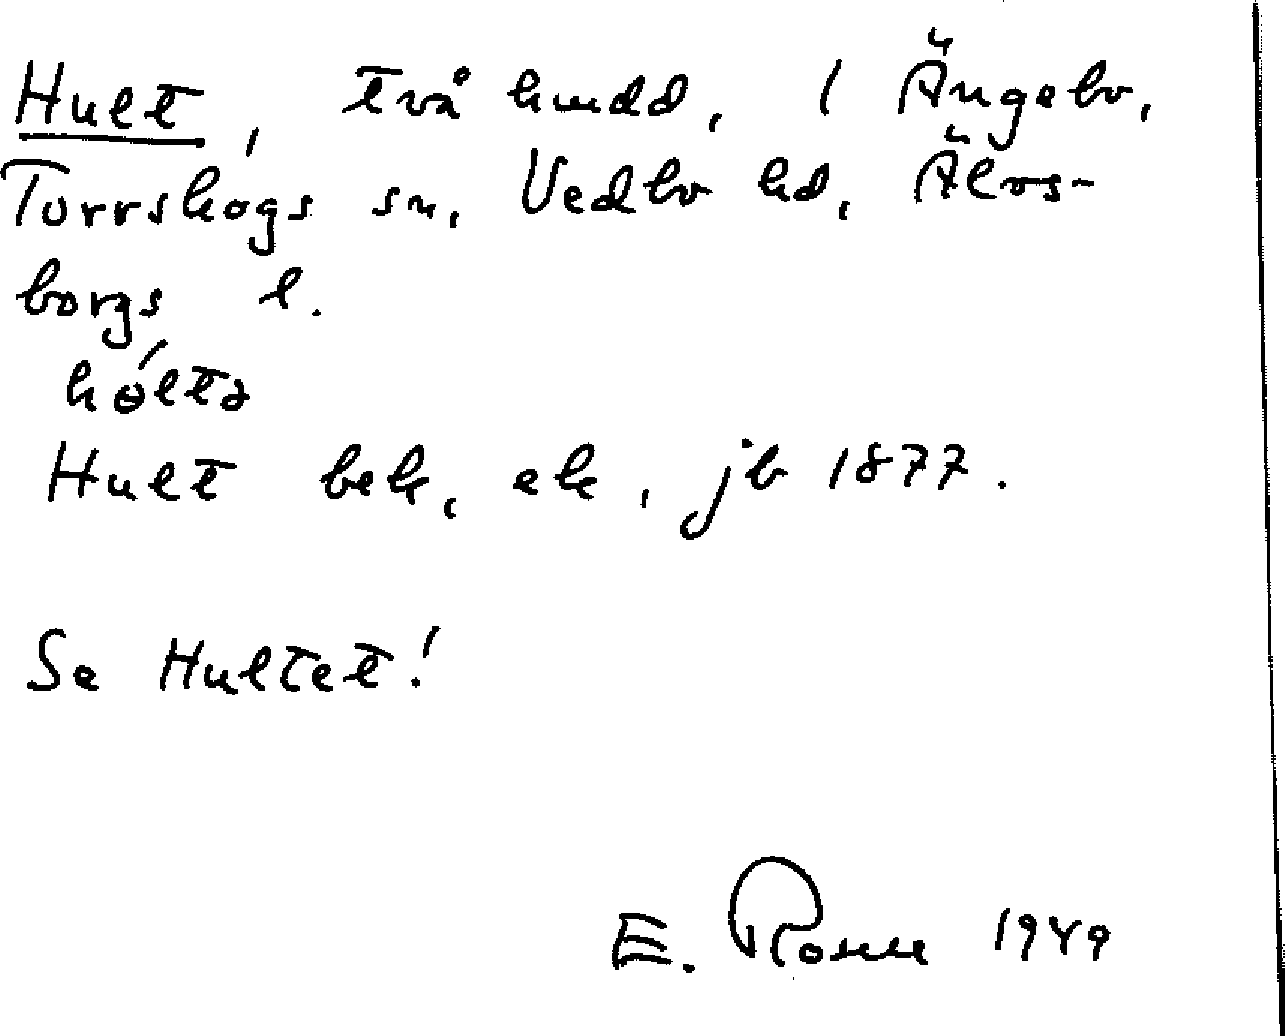 Hult, två hmdd, i Ängebo,
Torrskogs sn, Vedbo hd, Älvs-
borgs l.
hóltə
Hult bek, ek, jb 1877.
Se Hultet!
E. Rosell 1949